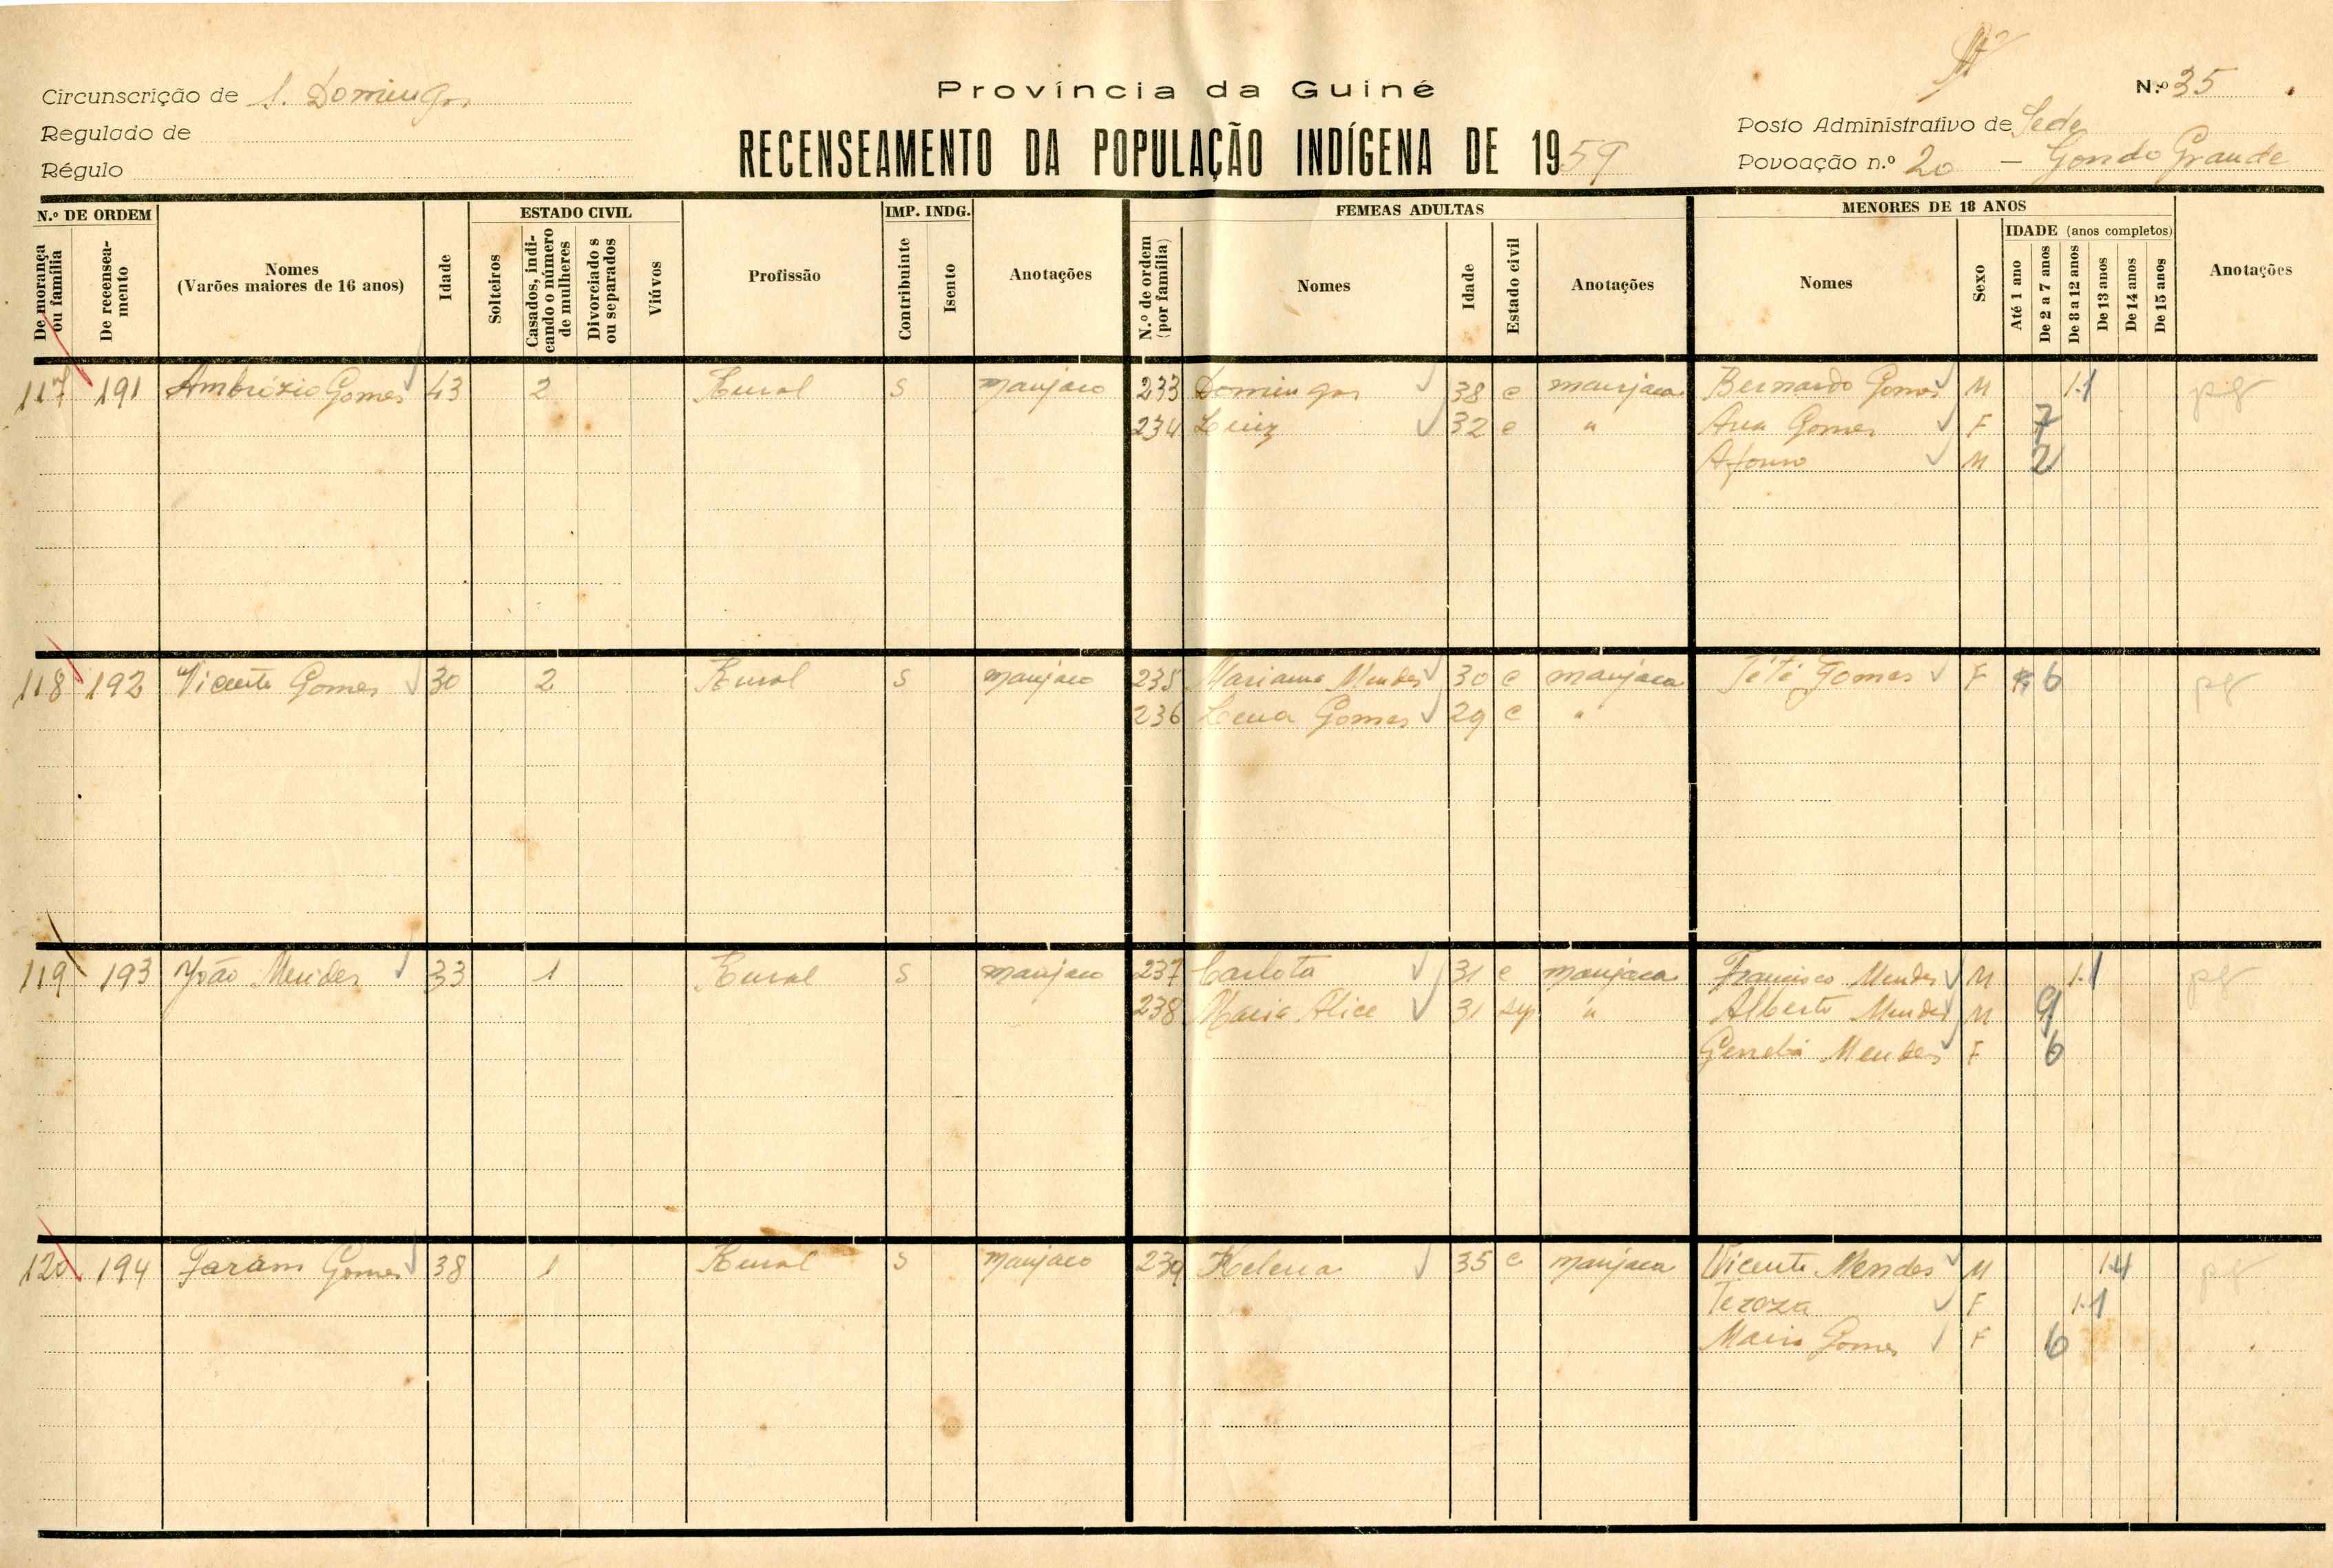 Província da Guiné
Circunscrição de S. Domingos
N.º 35
Regulado de
RECENSEAMENTO DA POPULAÇÃO INDÍGENA DE 1959
Posto Administrativo de Sede
Régulo
Povoação n.º 20 — Gondo Grande
N.º DE ORDEM
De morança ou família
De recensea-mento
Nomes
(Varões maiores de 16 anos)
Idade
ESTADO CIVIL
Solteiros
Casados, indi-cando o número de mulheres
Divorciados ou separados
Viúvos
Profissão
IMP. INDG.
Contribuinte
Isento
Anotações
FEMEAS ADULTAS
N.º de ordem (por família)
Nomes
Idade
Estado civil
Anotações
MENORES DE 18 ANOS
Nomes
Sexo
IDADE (anos completos)
Até 1 ano
De 2 a 7 anos
De 8 a 12 anos
De 13 anos
De 14 anos
De 15 anos
Anotações
117 191 Ambrózio Gomes 43 2 Rural S manjaco 233 Domingas 38 c manjaca Bernardo Gomes M 11 pg
234 Luiz 32 c " Ana Gomes F 7
Afonso M 2
118 192 Vicente Gomes 30 2 Rural S manjaco 235 Mariama Mendes 30 c manjaca Tété Gomes F 6 pg
236 Lena Gomes 29 c "
119 193 João Mendes 33 1 Rural S manjaco 237 Carlota 31 c manjaca Francisco Mendes M 11 pg
238 Maria Alice 31 sp " Alberto Mendes M 9
Mendes F 6
120 194 Faram Gomes 38 1 Rural S manjaco 239 Helena 35 c manjaca Vicente Mendes M 14 pg
Tereza F 11
Maria Gomes F 6